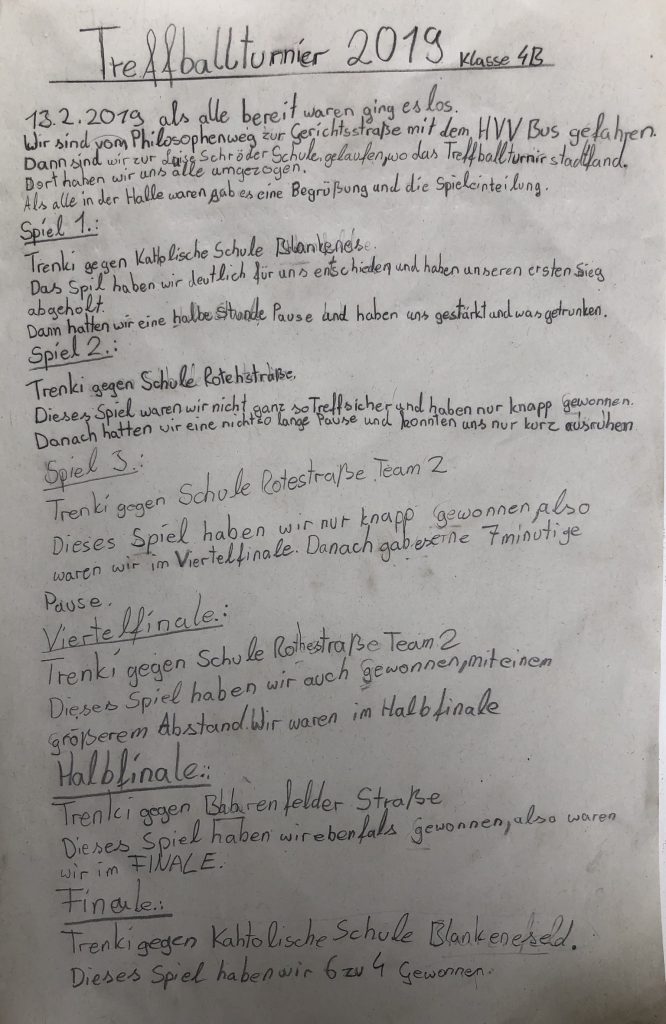 Treffballturnier 2019 Klasse 4B
13.2.2019 als alle bereit waren ging es los.
Wir sind vom Philosophenweg zur Gerichtsstraße mit dem HVV Bus gefahren.
Dann sind wir zur Luise Schröder Schule, gelaufen, wo das Treffballturnir stadtfand.
Dort haben wir uns alle umgezogen.
Als alle in der Halle waren gab es eine Begrüßung und die Spieleinteilung.
Spiel 1.:
Trenki gegen Katholische Schule Blankenese.
Das Spil haben wir deutlich für uns entschieden und haben unseren ersten Sieg
abgeholt.
Dann hatten wir eine halbe Stunde Pause und haben uns gestärkt und was getrunken.
Spiel 2.:
Trenki gegen Schule Rotehstraße.
Dieses Spiel waren wir nicht ganz so Treffsicher und haben nur knapp gewonnen.
Danach hatten wir eine nicht so lange Pause und konnten uns nur kurz ausruhen
Spiel 3.:
Trenki gegen Schule Rotestraße Team 2
Dieses Spiel haben wir nur knapp gewonnen, also
waren wir im Viertelfinale. Danach gab es eine 7 minutige
Pause.
Viertelfinale.:
Trenki gegen Schule Rothestraße Team 2
Dieses Spiel haben wir auch gewonnen, mit einem
größerem Abstand. Wir waren im Halbfinale
Halbfinale.:
Trenki gegen Babarenfelder Straße
Dieses Spiel haben wir ebenfals gewonnen, also waren
wir im FINALE.
Finale.:
Trenki gegen Kahtolische Schule Blankenefeld.
Dieses Spiel haben wir 6 zu 4 Gewonnen.